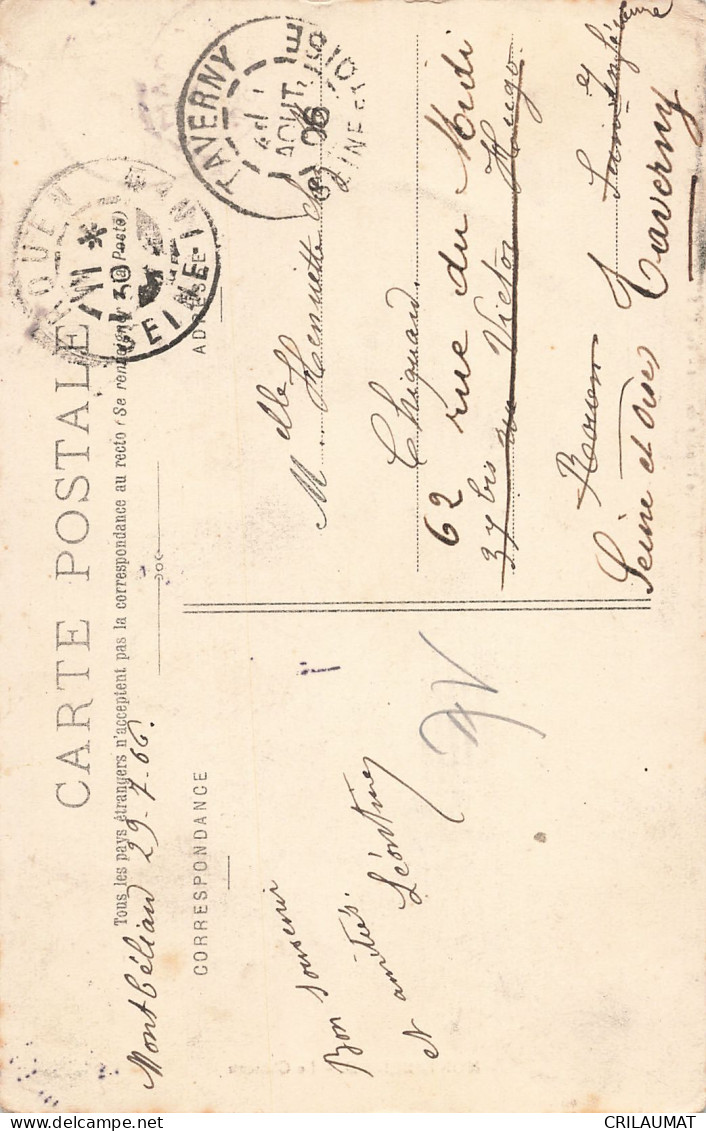 CARTE POSTALE
Tous les pays étrangers n'acceptent pas la correspondance au recto (Se renseigner à la Poste)
MontCélian 29-7-06.
CORRESPONDANCE
ADRESSE
Bon souvenir
et amitiés.
Léontine
Melle Henriette
Chiquard.
62 rue du Midi
37 bis rue Victor Hugo.
Rouen
Seine Inférieure
Seine et Oise
Taverny
ROUEN
30
SEINE-INF
TAVERNY
AOUT
06
SEINE-ET-OISE
CRILAUMAT